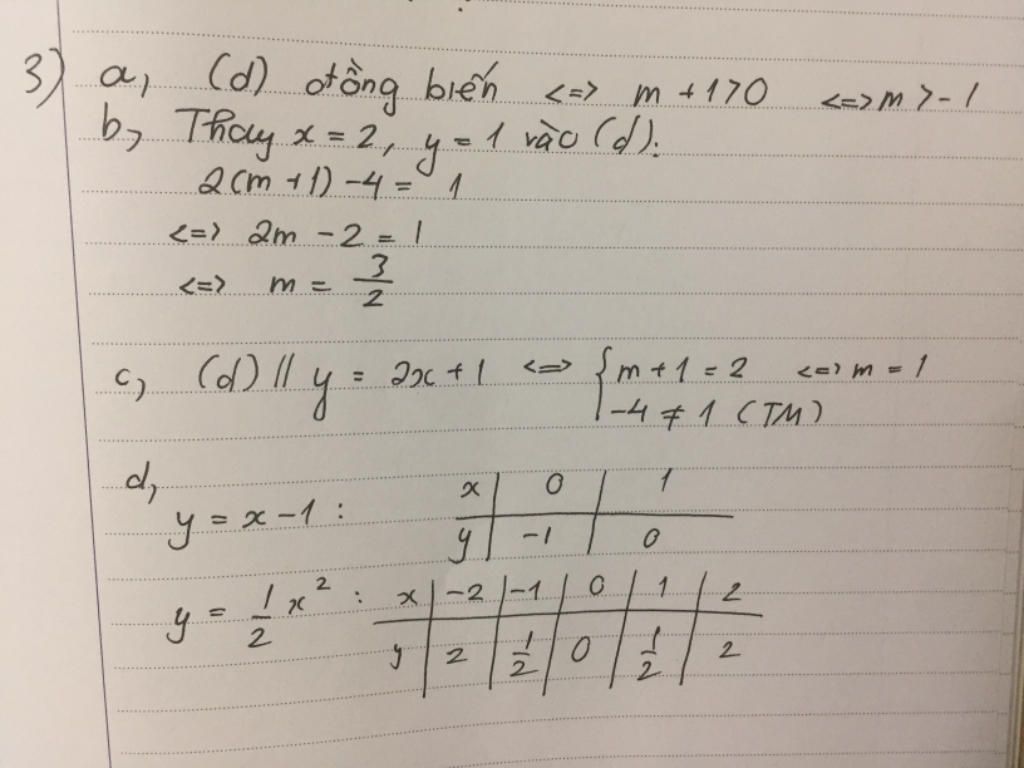 3) a, (d) đồng biến <=> m + 1 > 0 <=> m > -1
b, Thay x = 2, y = 1 vào (d):
2(m + 1) - 4 = 1
<=> 2m - 2 = 1
<=> m = 3/2
c, (d) // y = 2x + 1 <=> { m + 1 = 2 <=> m = 1
-4 ≠ 1 (TM)
d,
y = x - 1 : x | 0 | 1
y | -1 | 0
y = 1/2 x² : x | -2 | -1 | 0 | 1 | 2
y | 2 | 1/2 | 0 | 1/2 | 2